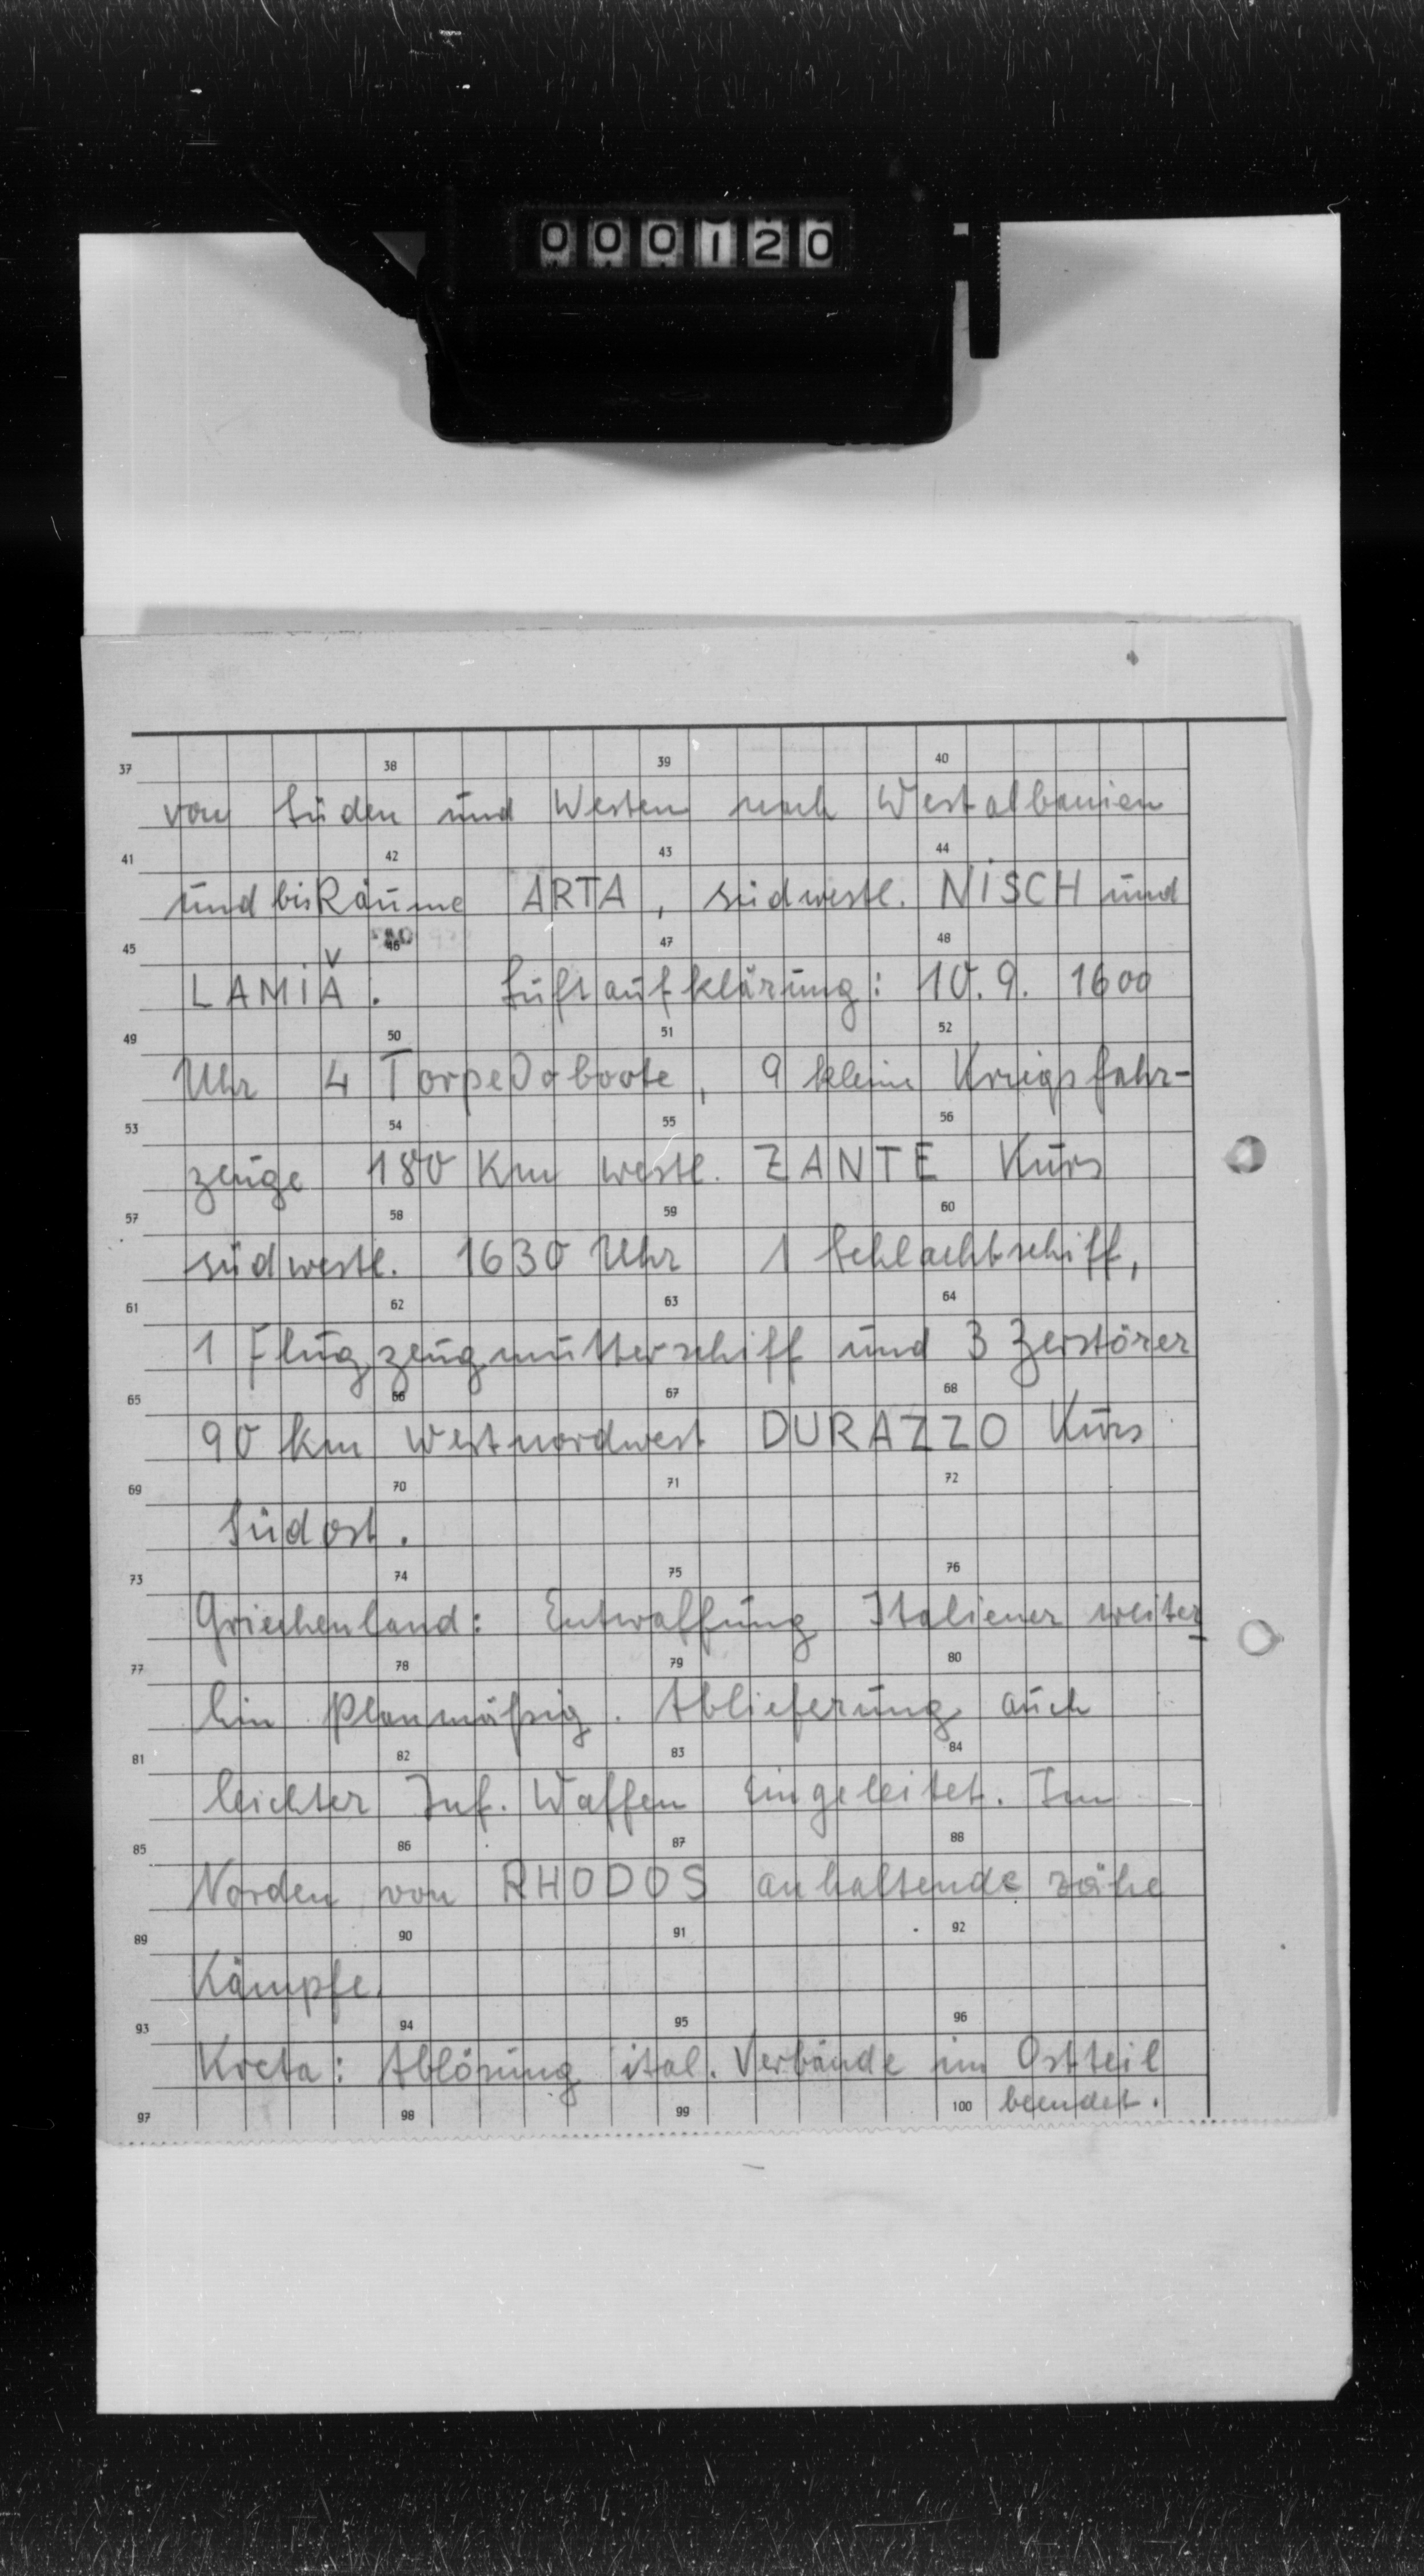 000120
37 38 39 40
von Süden und Westen nach Westalbanien
41 42 43 44
und bis Räume ARTA, südwestl. NISCH und
45 46 47 48
LAMIA. Luftaufklärung: 10.9. 1600
49 50 51 52
Uhr 4 Torpedoboote, 9 kleine Kriegsfahr-
53 54 55 56
zeuge 180 Km westl. ZANTE Kurs
57 58 59 60
südwestl. 1630 Uhr 1 Schlachtschiff,
61 62 63 64
1 Flugzeugmutterschiff und 3 Zerstörer
65 66 67 68
90 km westnordwest DURAZZO Kurs
69 70 71 72
Südost.
73 74 75 76
Griechenland: Entwaffnung Italiener weiter-
77 78 79 80
hin planmäßig. Ablieferung auch
81 82 83 84
leichter Inf. Waffen eingeleitet. Im
85 86 87 88
Norden von RHODOS anhaltende zähe
89 90 91 92
Kämpfe.
93 94 95 96
Kreta: Ablösung ital. Verbände im Ostteil
97 98 99 100 beendet.